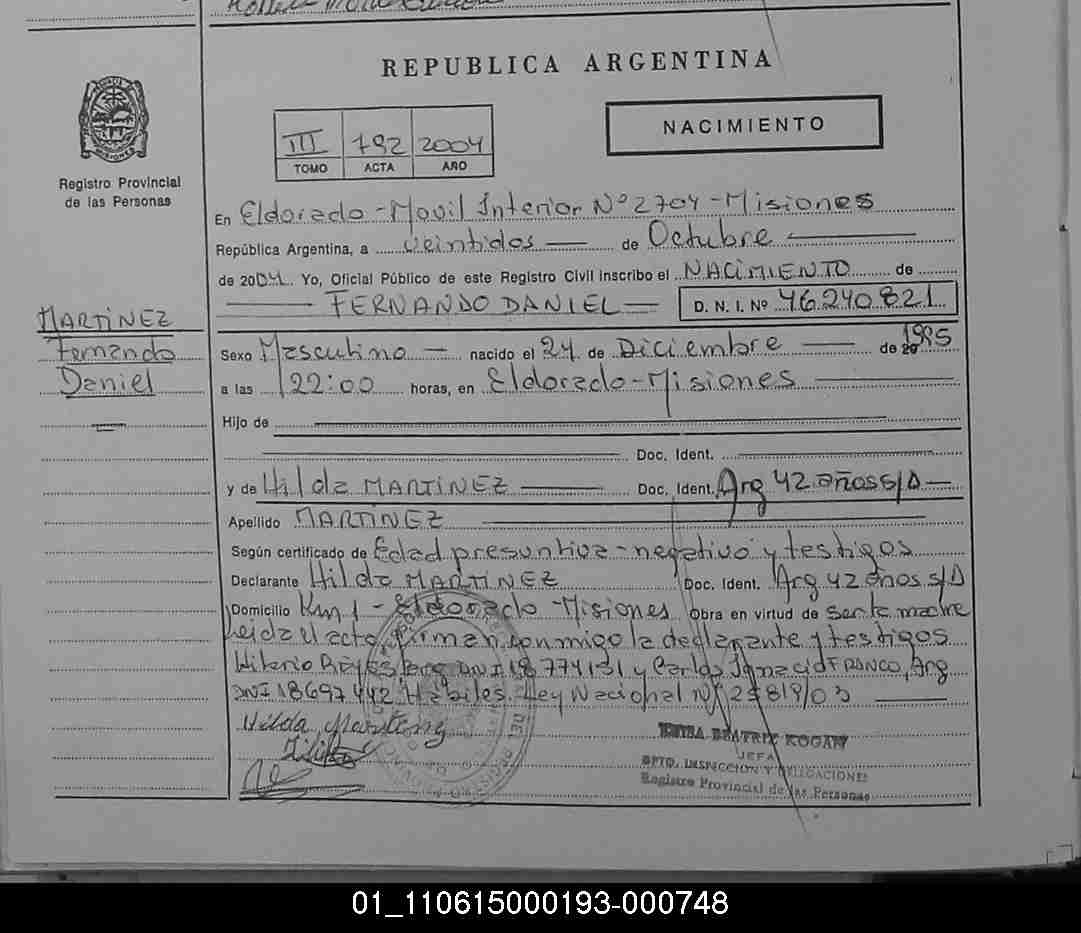 REPUBLICA ARGENTINA
NACIMIENTO
III 792 2004
TOMO ACTA AÑO
Registro Provincial
de las Personas
En Eldorado - Movil Interior Nº 2704 - Misiones
República Argentina, a veintidos de Octubre
de 2004. Yo, Oficial Público de este Registro Civil inscribo el NACIMIENTO de
FERNANDO DANIEL D. N. I. Nº 46.240.821
MARTINEZ
Fernando
Daniel
Sexo Masculino nacido el 24 de Diciembre de 1995
a las 22:00 horas, en Eldorado - Misiones
Hijo de
Doc. Ident.
y de Hilda MARTINEZ Doc. Ident. Arg 42 años S/D
Apellido MARTINEZ
Según certificado de Edad presuntiva - negativo y testigos
Declarante Hilda MARTINEZ Doc. Ident. Arg 42 años S/D
Domicilio Km 1 - Eldorado - Misiones Obra en virtud de ser la madre
Leida el acta, firman conmigo la declarante y testigos
Hilario REYES Arg DNI 18 774131 y Carlos Ignacio FRANCO, Arg
DNI 18697442 Habiles. Ley Nacional Nº 25819/03
Hilda Martinez
BEATRIZ KOGAN
JEFA
DPTO. INSPECCION Y DELEGACIONES
Registro Provincial de las Personas
01_110615000193-000748